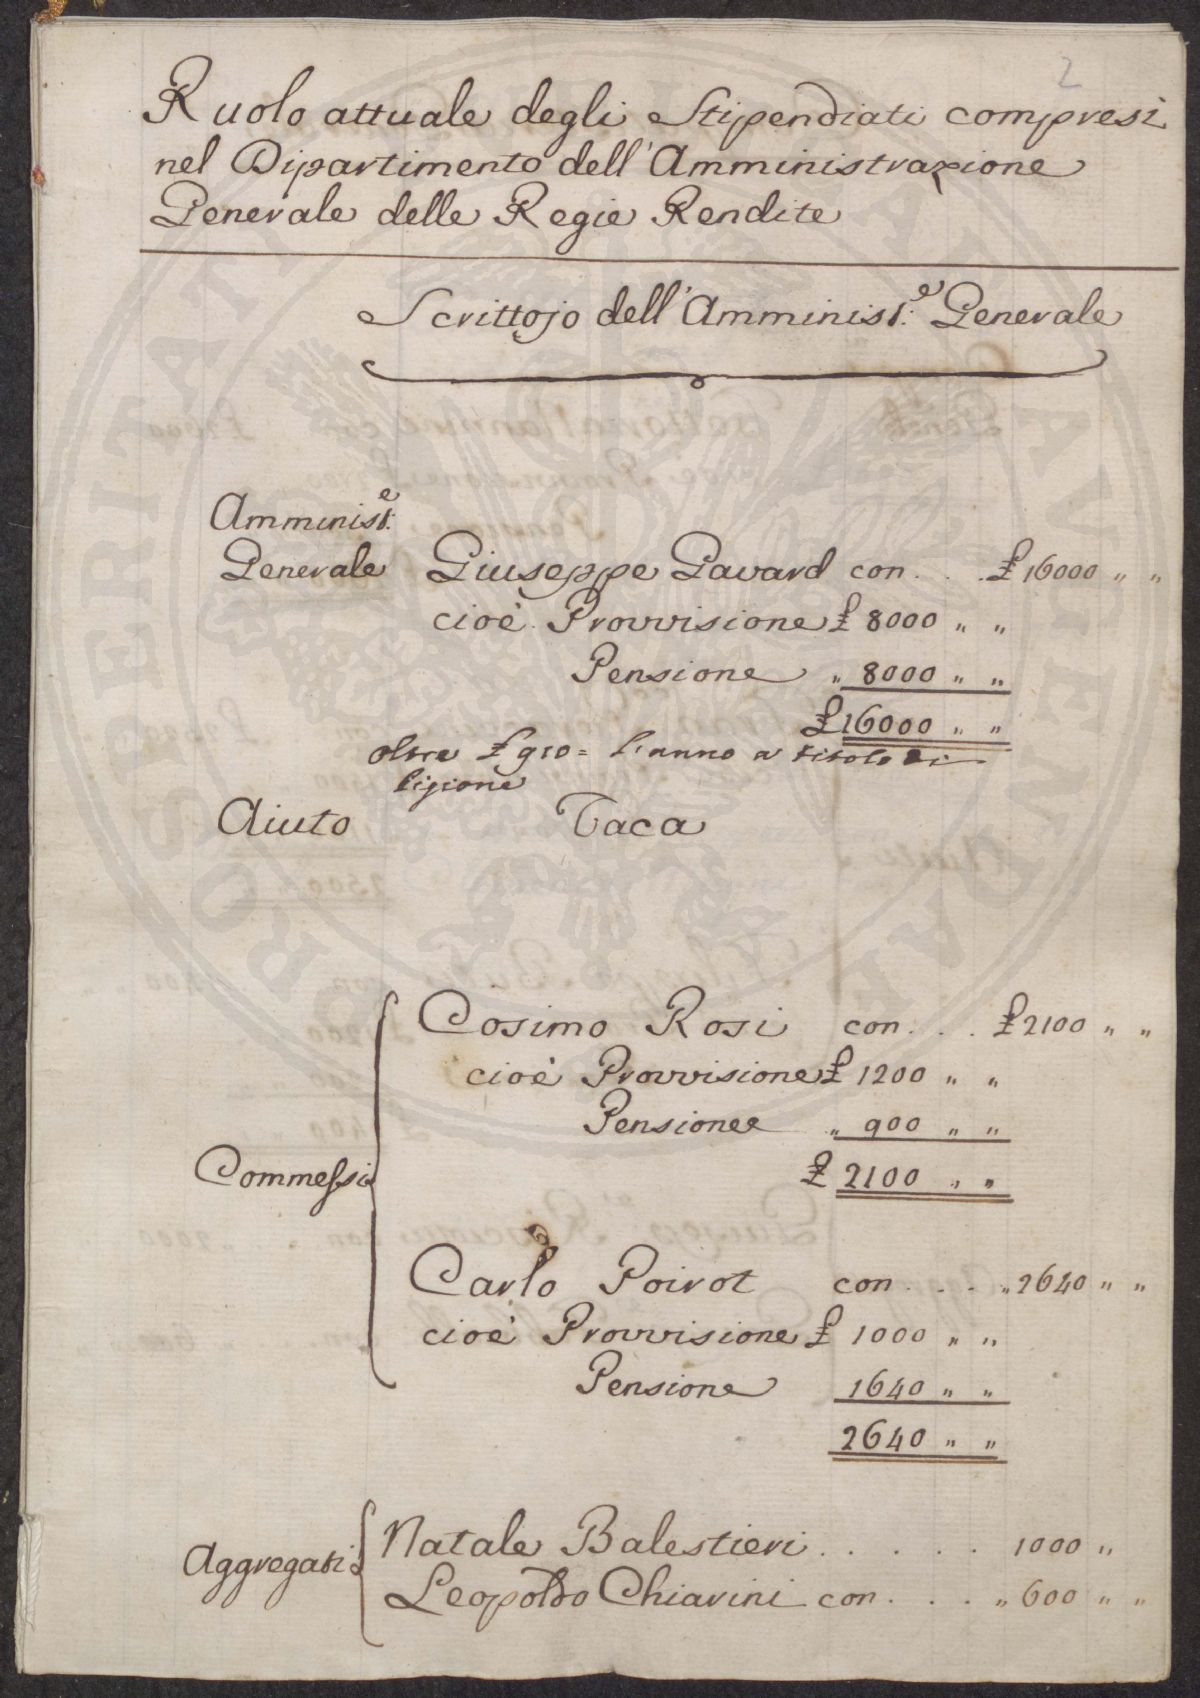 2
Ruolo attuale degli Stipendiati compresi
nel Dipartimento dell'Amministrazione
Generale delle Regie Rendite
Scrittojo dell'Amminist.e Generale
Amminist.e
Generale Giuseppe Gavard con . . . £ 16000 " "
cioè Provvisione £ 8000 " "
Pensione " 8000 " "
£ 16000 " "
oltre £ 910 = l'anno a titolo di
pigione
Aiuto Vaca
Commessi
Cosimo Rosi con . . . £ 2100 " "
cioè Provvisione £ 1200 " "
Pensione " 900 " "
£ 2100 " "
Carlo Poirot con . . . " 2640 " "
cioè Provvisione £ 1000 " "
Pensione 1640 " "
2640 " "
Aggregati
Natale Balestieri . . . . . . 1000 "
Leopoldo Chiarini con . . . " 600 " "
PROSPERITATI